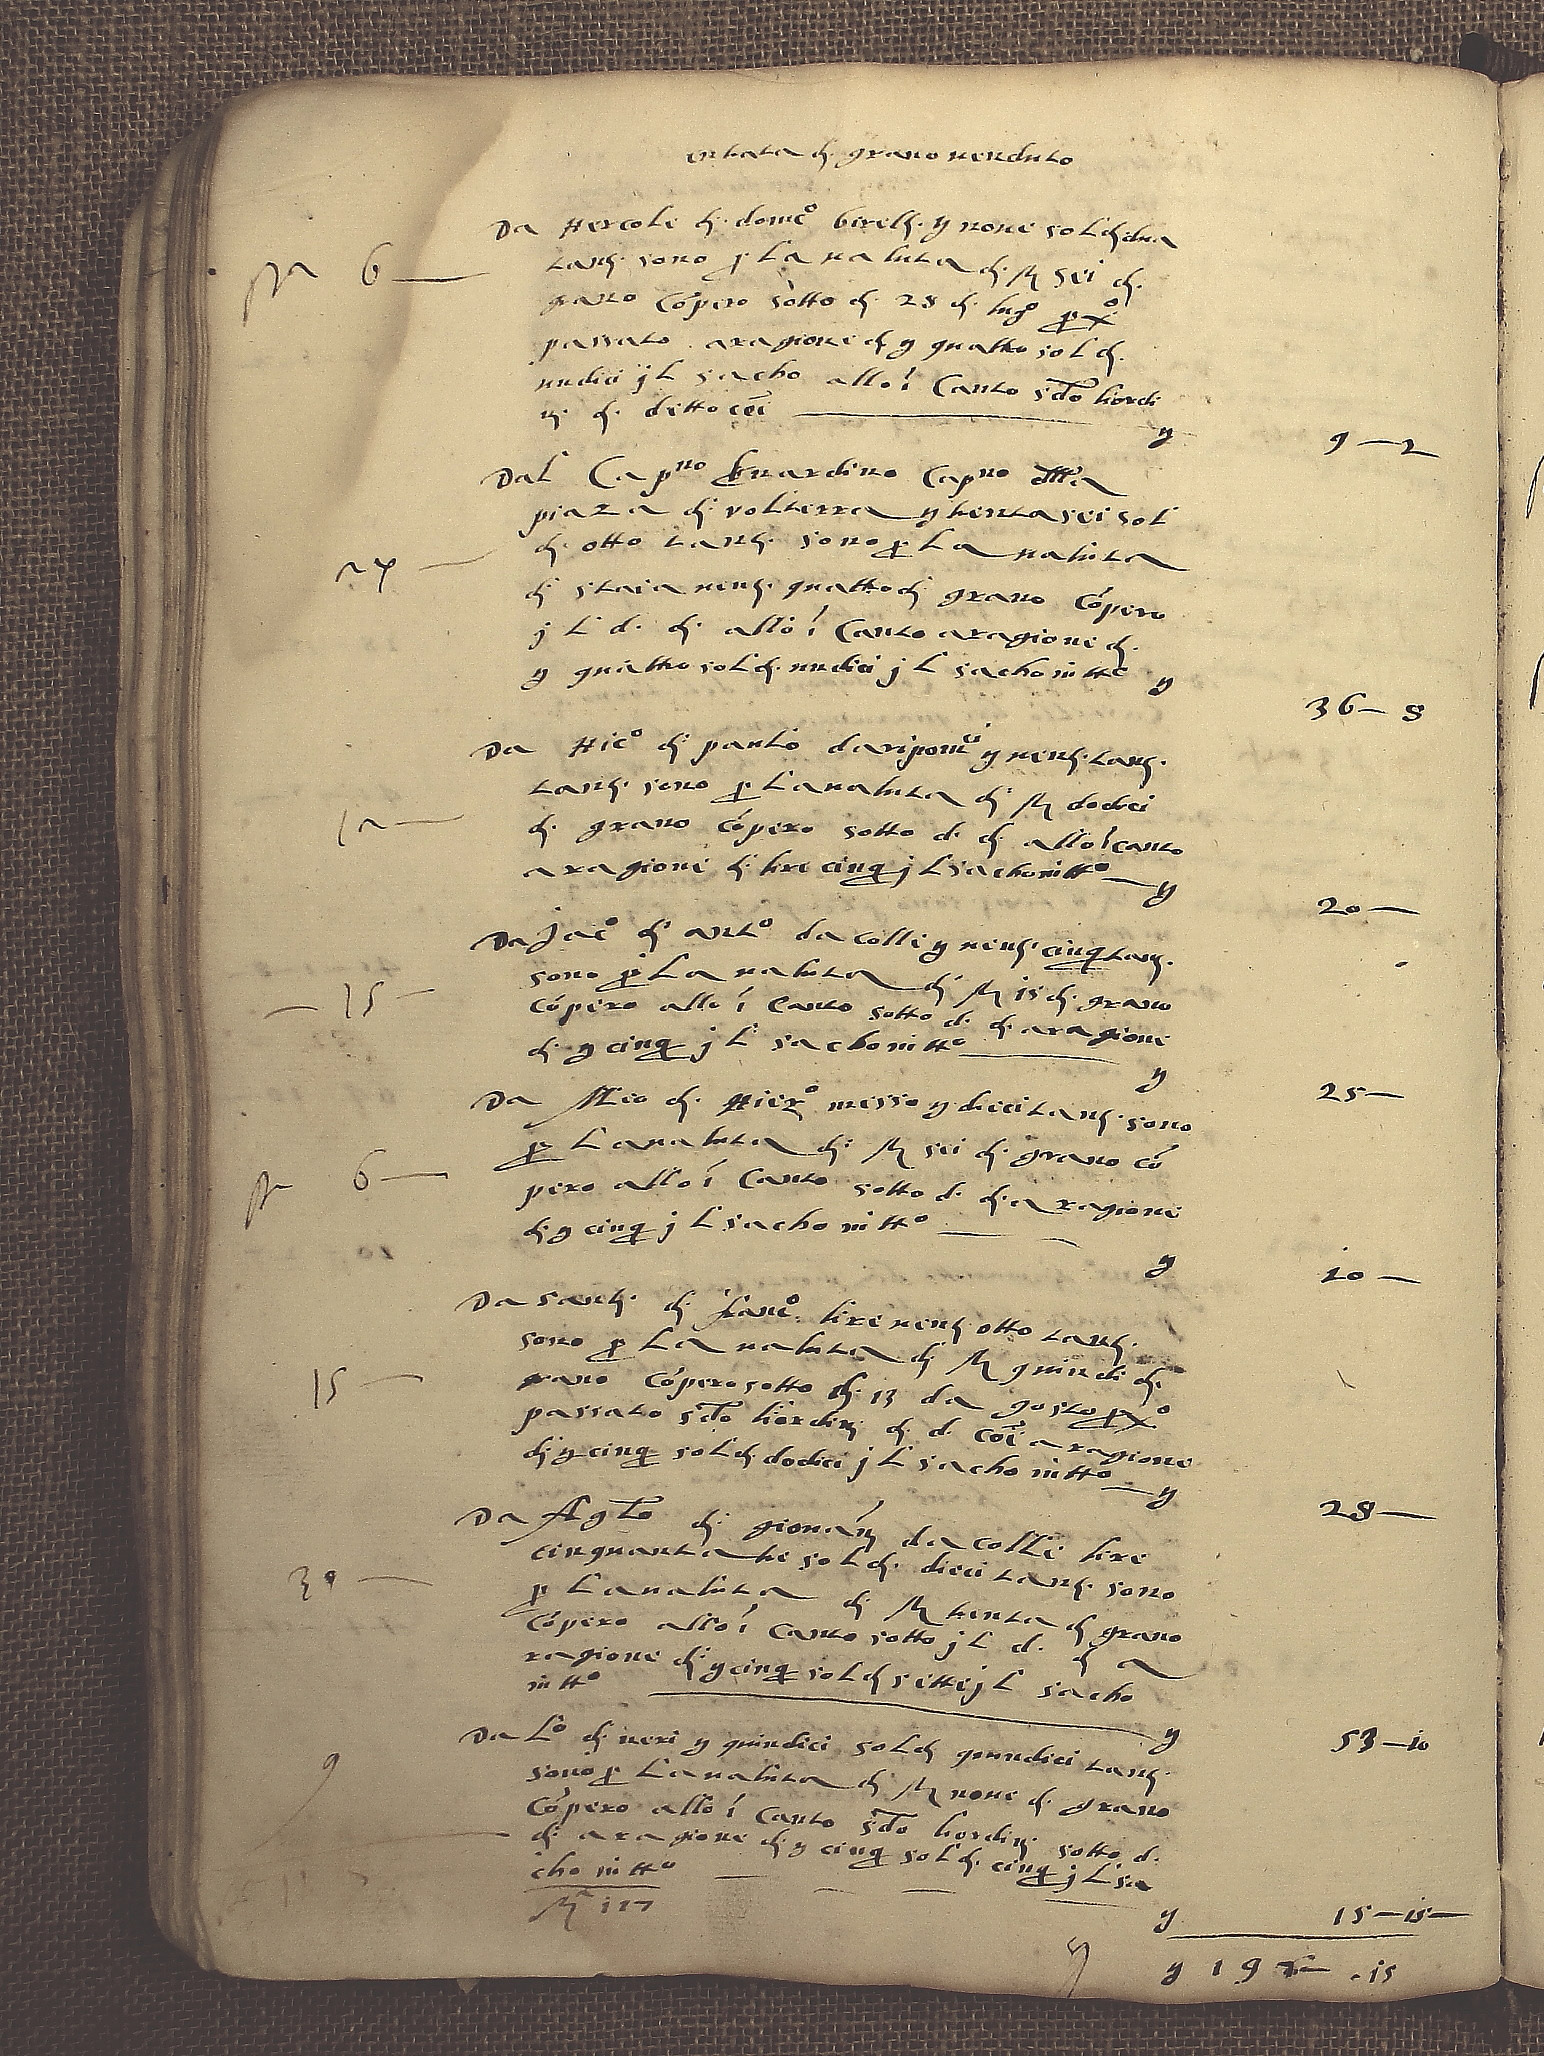 entrata di grano venduto
Da Hercole di domco birelli y nove soldi dua
tanti sono p la valuta di st sei di
grano copero sotto di 28 di lugo pxo
passato aragione di y quattro sol di
undici jl sacho allo i Canto sdo liordi
ni di ditto coi
st 6 y 9 — 2
Dal Capno bernardino Capno della
piaza di volterra y trenta sei sol
di otto tanti sono p la valuta
24
di staia venti quattro di grano copero
jl d. di allo i Canto aragione di
y quattro soldi undici jl sacho nitto y
36 — 8
Da Hico di paulo daripomci y venti tanti
tanti sono p la valuta di st dodici
12
di grano copero sotto d. di allo i canto
aragione di lire cinq jl sacho nitto y
20 —
Da Jaco di anto da colle y venti cinq tanti
sono p la valuta di st 15 di grano
15
copero allo i Canto sotto d. di aragione
di y cinq jl sacho nitto
y 25 —
Da Meo di piero messo y dieci tanti sono
p la valuta di st sei di grano co
st 6
pero allo i Canto sotto d. di aragione
di y cinq jl sacho nitto
y 10 —
Da santi di franco lire venti otto tanti
sono p la valuta di st quindi di
15
grano copero sotto di 13 da gosto pxo
passato sdo liordini di d. coi aragione
di y cinq soldi dodici jl sacho nitto y
28 —
Da Agto di giovani da colle lire
cinquanta tre soldi dieci tanti sono
30
p la valuta di st trenta di grano
copero allo i Canto sotto jl d. di a
ragione di y cinq soldi sette jl sacho
nitto y 53 — 10
Da Lo di neri y quindici soldi quindici tanti
sono p la valuta di st nove di grano
9
copero allo i Canto sdo liordini sotto d.
di aragione di y cinq sol di cinq jl sa
cho nitto
sta 117 y 15 — 15 —
y 197 — . 15